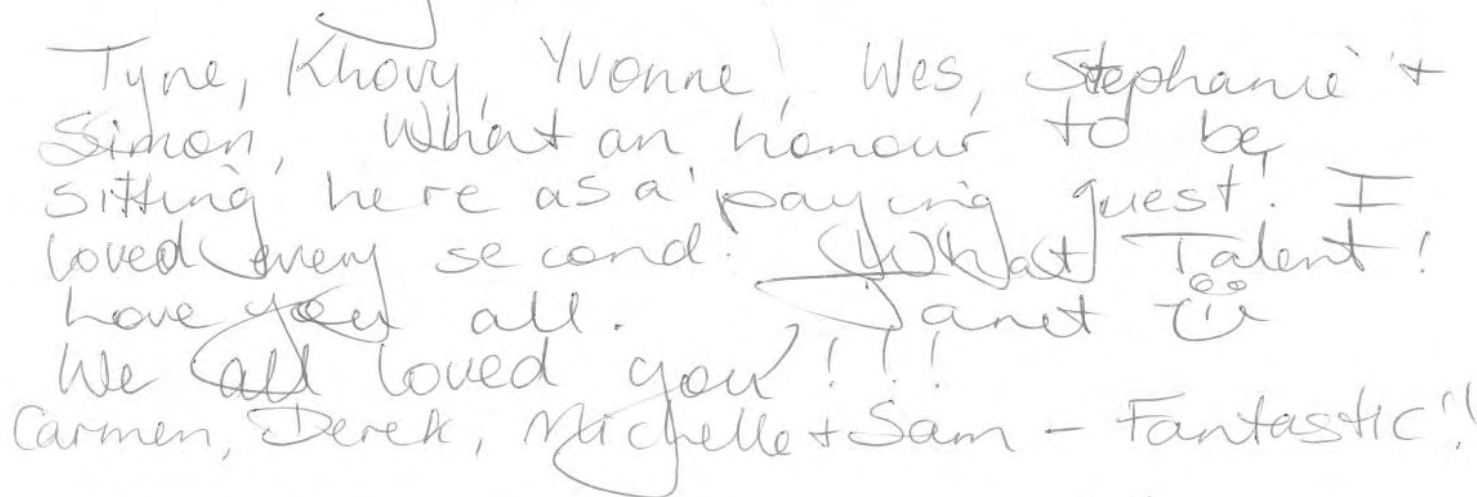 Tyne, Khovy, Yvonne, Wes, Stephanie +
Simon, What an honour to be
sitting here as a paying guest! I
loved every second. What Talent!
Love you all. Janet
We all loved you!!!
Carmen, Derek, Michelle + Sam - Fantastic!!